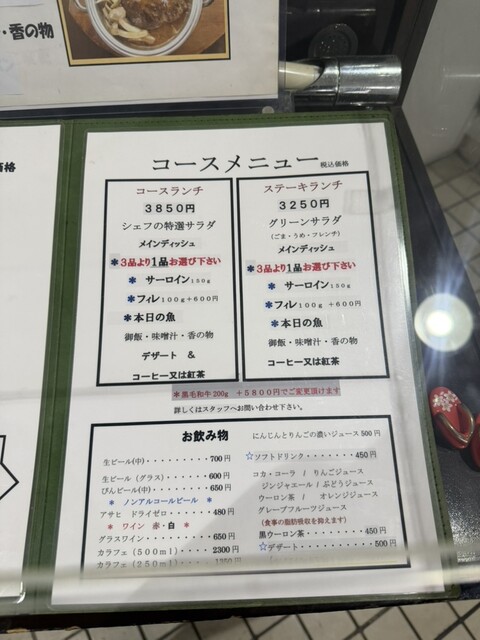 ・香の物
価格
コースメニュー 税込価格
コースランチ
3850円
シェフの特選サラダ
メインディッシュ
＊3品より1品お選び下さい
＊ サーロイン150g
＊フィレ100g＋600円
＊本日の魚
御飯・味噌汁・香の物
デザート ＆
コーヒー又は紅茶
ステーキランチ
3250円
グリーンサラダ
(ごま・うめ・フレンチ)
メインディッシュ
＊3品より1品お選び下さい
＊ サーロイン150g
＊フィレ100g ＋600円
＊本日の魚
御飯・味噌汁・香の物
コーヒー又は紅茶
＊黒毛和牛200g ＋5800円でご変更頂けます
詳しくはスタッフへお問い合わせ下さい。
お飲み物
生ビール(中)・・・・・・・・・700円
生ビール（グラス）・・・・・・600円
びんビール(中)・・・・・・・・650円
＊ ノンアルコールビール ＊
アサヒ ドライゼロ・・・・・・480円
＊ ワイン 赤・白 ＊
グラスワイン・・・・・・・・・650円
カラフェ（500ml）・・・・2300円
カラフェ（250ml）・・・・1350円
にんじんとりんごの濃いジュース500円
☆ソフトドリンク・・・・・・・・450円
コカ・コーラ ／ りんごジュース
ジンジャエール ／ ぶどうジュース
ウーロン茶 ／ オレンジジュース
グレープフルーツジュース
(食事の脂肪吸収を抑えます)
黒ウーロン茶・・・・・・・・・450円
☆デザート・・・・・・・・・・・500円